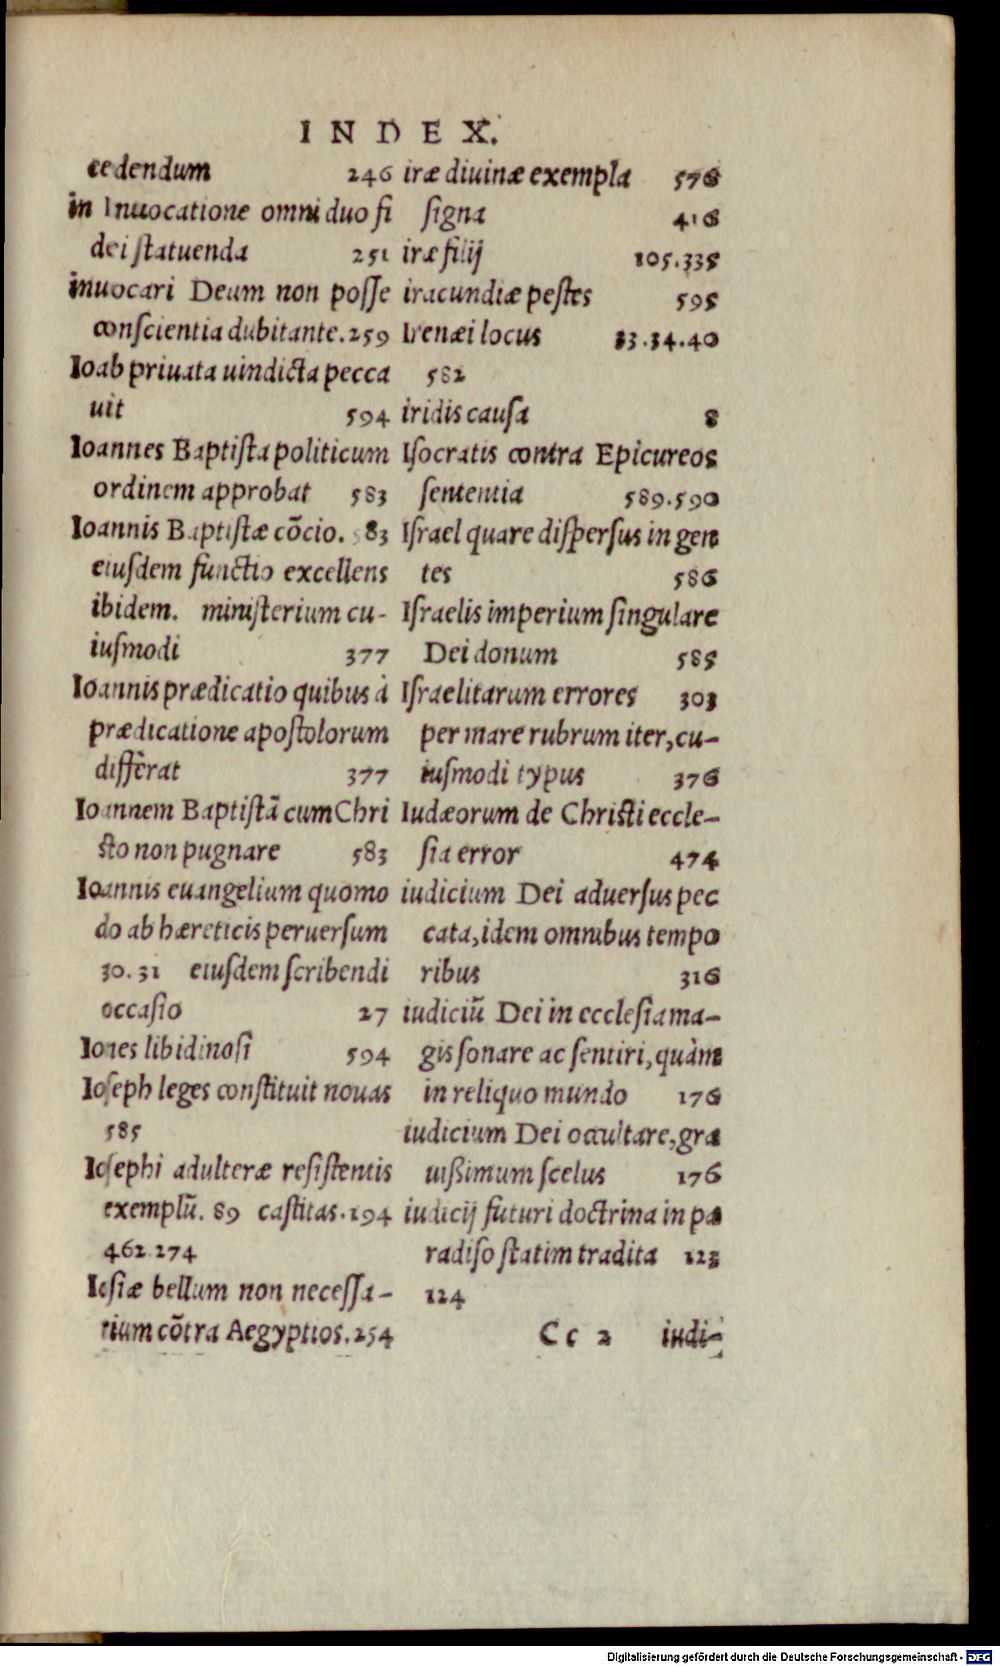 INDEX.
cedendum 246
in Inuocatione omni duo fi
dei ſtatuenda 251
inuocari Deum non poſſe
conſcientia dubitante. 259
Ioab priuata uindicta pecca
uit 594
Ioannes Baptiſta politicum
ordinem approbat 583
Ioannis Baptiſtæ cōcio. 583
eiuſdem functio excellens
ibidem. miniſterium cu-
iuſmodi 377
Ioannis prædicatio quibus à
prædicatione apoſtolorum
differat 377
Ioannem Baptiſtã cum Chri
ſto non pugnare 583
Ioannis euangelium quomo
do ab hæreticis peruerſum
30.31 eiuſdem ſcribendi
occaſio 27
Iones libidinoſi 594
Ioſeph leges conſtituit nouas
585
Ioſephi adulteræ reſiſtentis
exemplū. 89 caſtitas. 194
462.274
Ioſiæ bellum non neceſſa-
rium cōtra Aegyptios. 254
iræ diuinæ exempla 576
ſigna 416
iræ filij 105.335
iracundiæ peſtes 595
Irenæi locus 33.34.40
582
iridis cauſa 8
Iſocratis contra Epicureos
ſententia 589.590
Iſrael quare diſperſus in gen
tes 586
Iſraelis imperium ſingulare
Dei donum 585
Iſraelitarum errores 303
per mare rubrum iter, cu-
iuſmodi typus 376
Iudæorum de Chriſti eccle-
ſia error 474
iudicium Dei aduerſus pec
cata, idem omnibus tempo
ribus 316
iudiciū Dei in eccleſia ma-
gis ſonare ac ſentiri, quàm
in reliquo mundo 176
iudicium Dei occultare, gra
uißimum ſcelus 176
iudicij futuri doctrina in pa
radiſo ſtatim tradita 123
124
Cc 2 iudi-
Digitalisierung gefördert durch die Deutsche Forschungsgemeinschaft - DFG